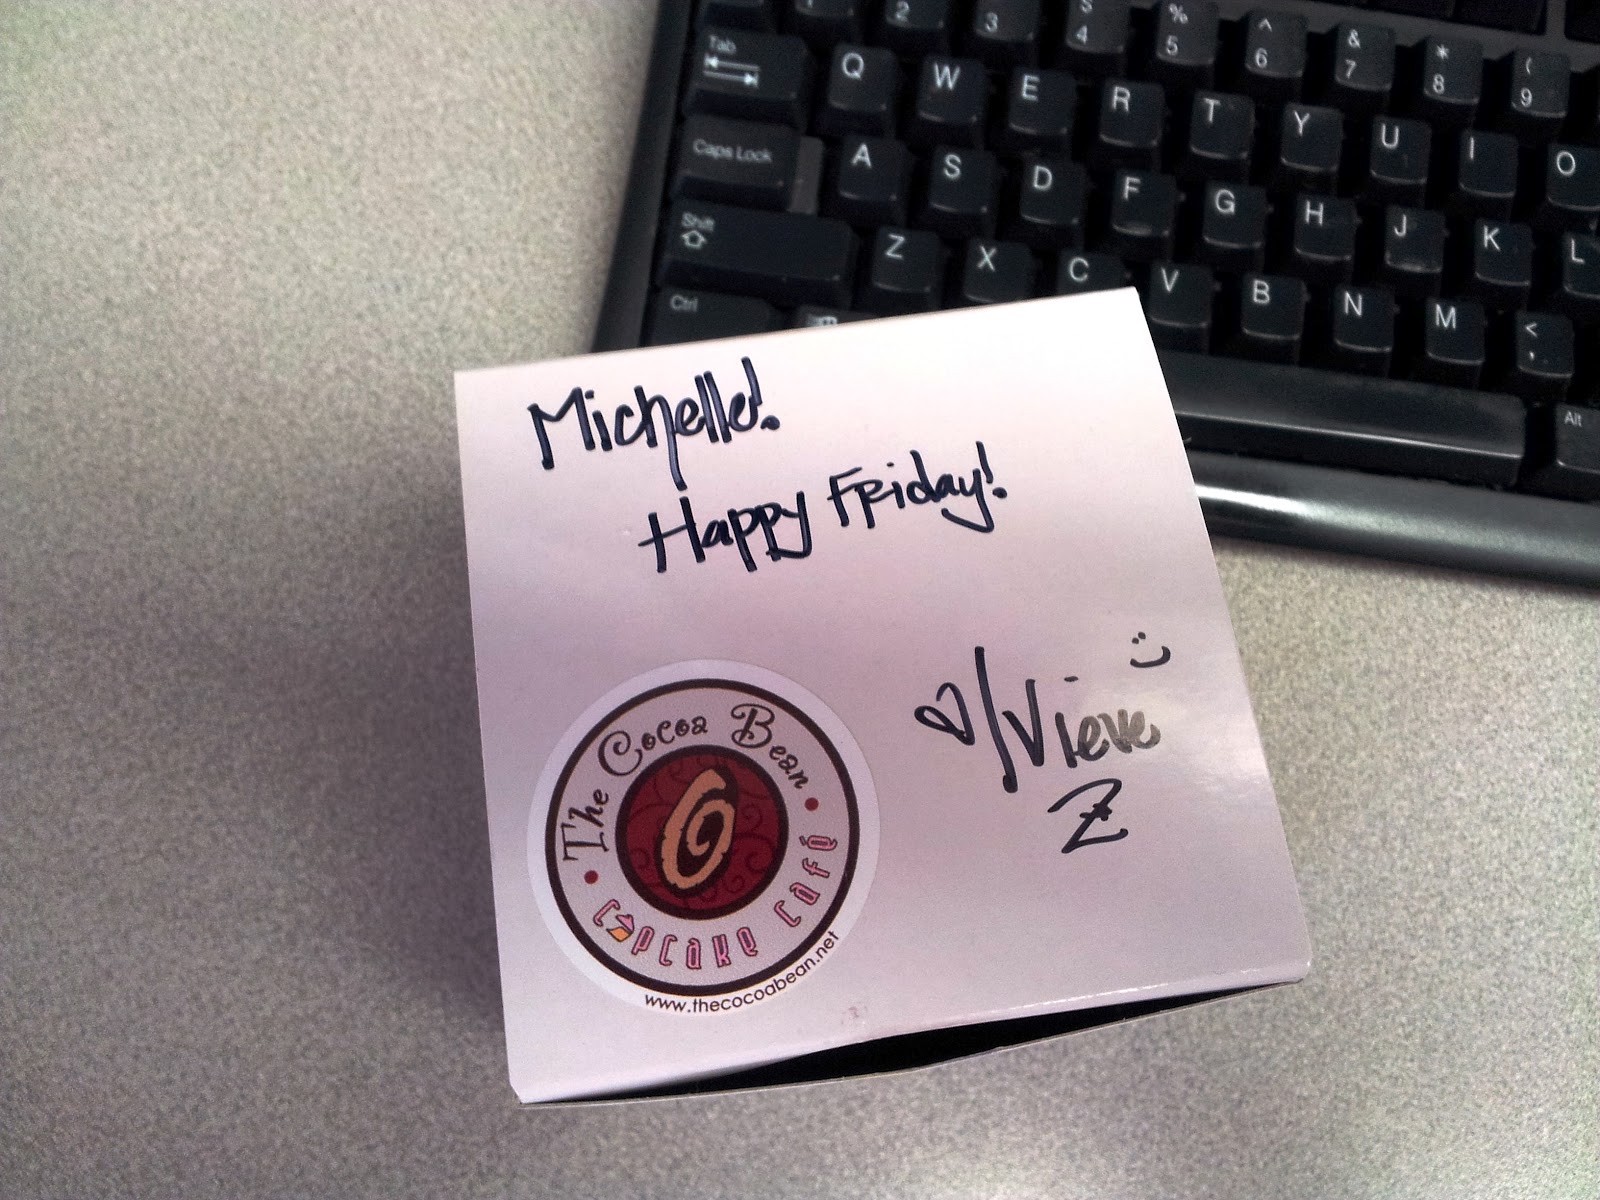 1 2 3 $ 4 % 5 ^ 6 & 7 * 8 ( 9
Tab Q W E R T Y U I O
Caps Lock A S D F G H J K L
Shift Z X C V B N M < ,
Ctrl Alt
Michelle!
Happy Friday!
♡/Vieve :)
Z
The Cocoa Bean
Cupcake Café
www.thecocoabean.net